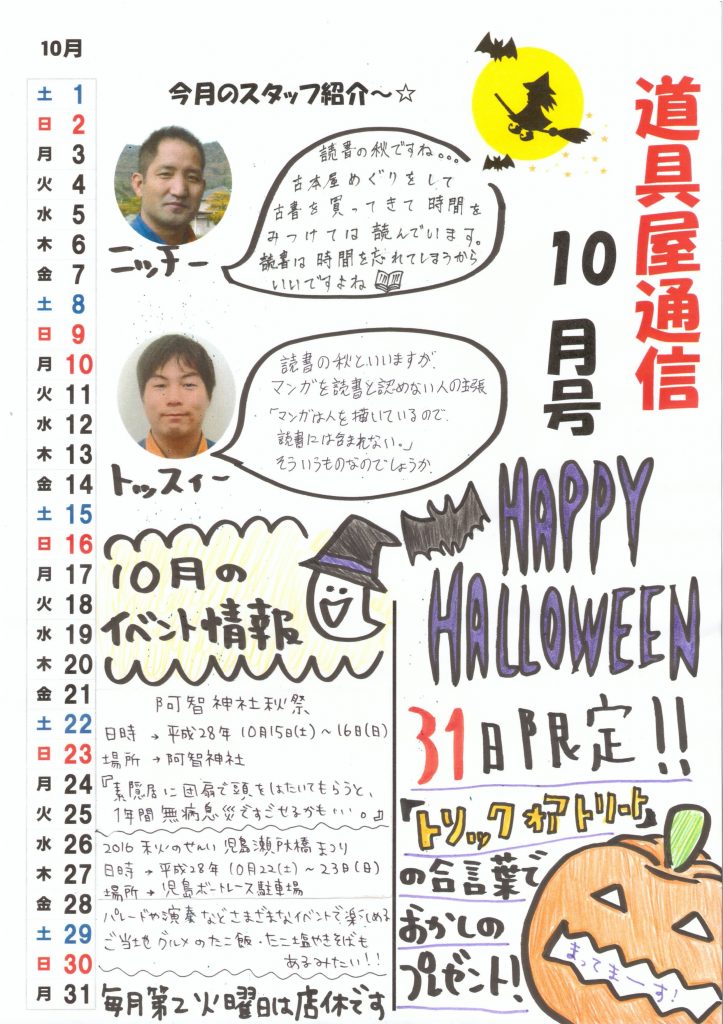 10月
土 1
日 2
月 3
火 4
水 5
木 6
金 7
土 8
日 9
月 10
火 11
水 12
木 13
金 14
土 15
日 16
月 17
火 18
水 19
木 20
金 21
土 22
日 23
月 24
火 25
水 26
木 27
金 28
土 29
日 30
月 31
道具屋通信
10月号
今月のスタッフ紹介～☆
ニッチー
読書の秋ですね。。。
古本屋めぐりをして
古書を買ってきて時間を
みつけては読んでいます。
読書は時間を忘れてしまうから
いいですよね
トッスィー
読書の秋といいますが、
マンガを読書と認めない人の主張
「マンガは人を描いているので、
読書には含まれない。」
そういうものなのでしょうか
HAPPY
HALLOWEEN
10月の
イベント情報
阿智神社秋祭
日時 → 平成28年10月15日(土)～16日(日)
場所 → 阿智神社
『素隠居に団扇で頭をはたいてもらうと、
1年間無病息災ですごせるかも…。』
2016 秋のせんい児島瀬戸大橋まつり
日時 → 平成28年10月22(土)～23日(日)
場所 → 児島ボートレース駐車場
パレードや演奏などさまざまなイベントで楽しめる
ご当地グルメのたこ飯・たこ塩やきそばも
あるみたい!!
毎月第2火曜日は店休です
31日限定!!
『トリック オア トリート』
の合言葉で
おかしの
プレゼント!
まってまーす!